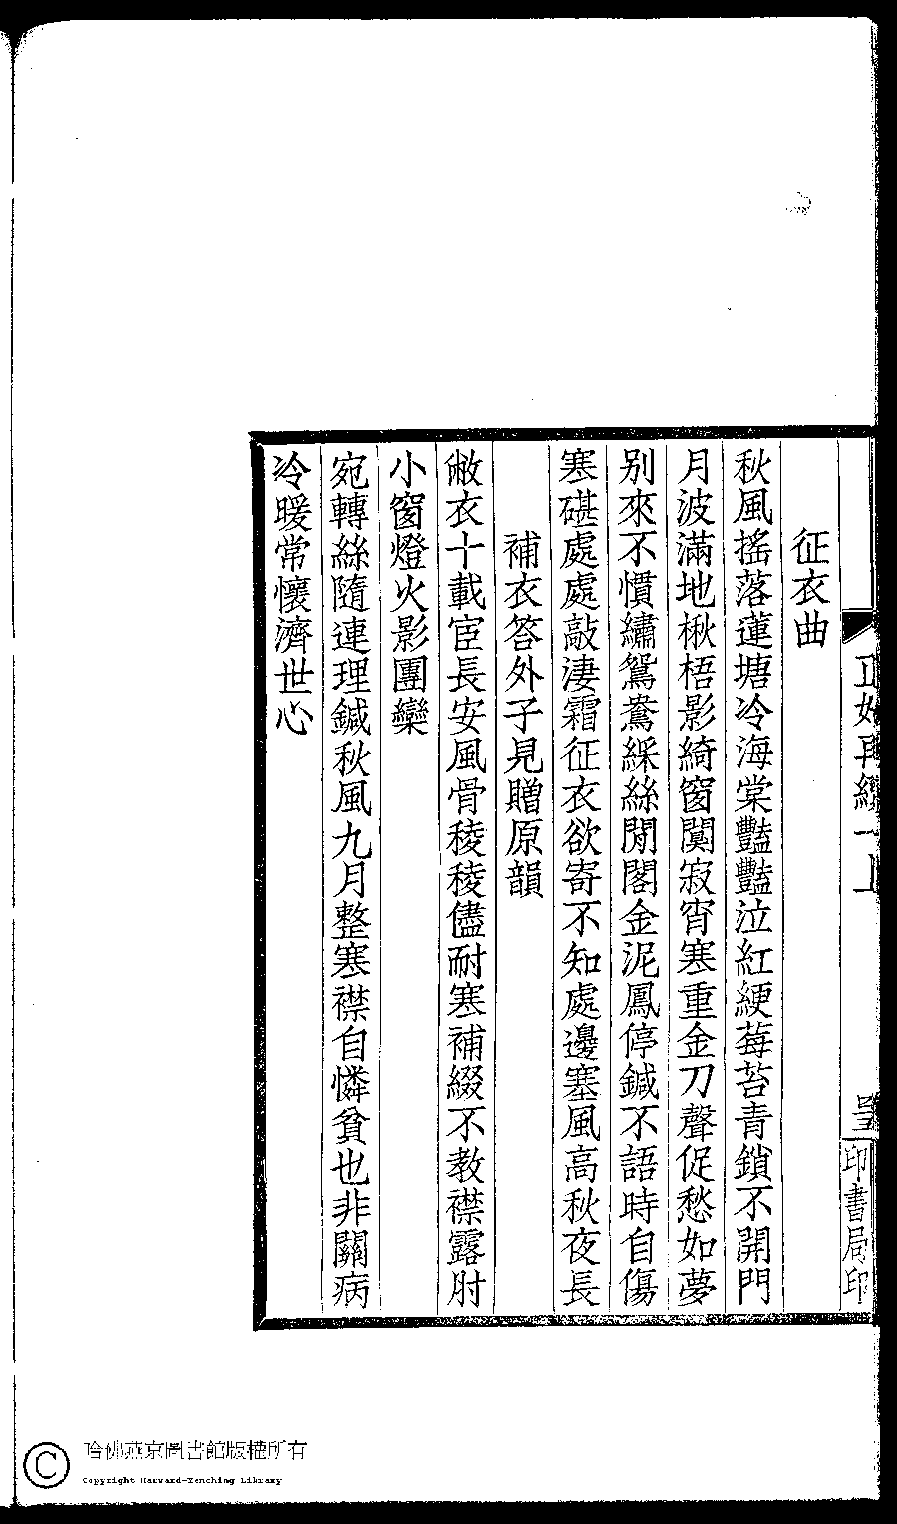 征衣曲
秋風搖落蓮塘冷海棠豔豔泣紅綆莓苔青鎖不開門
月波滿地楸梧影綺窗闃寂宵寒重金刀聲促愁如夢
別來不慣繡鴛鴦綵絲閒閣金泥鳳停鍼不語時自傷
寒碪處處敲淒霜征衣欲寄不知處邊塞風高秋夜長
補衣答外子見贈原韻
敝衣十載宦長安風骨稜稜儘耐寒補綴不教襟露肘
小窗燈火影團欒
宛轉絲隨連理鍼秋風九月整寒襟自憐貧也非關病
冷暖常懷濟世心
正始再續一上
印書局印
哈佛燕京圖書館版權所有
Copyright Harvard-Yenching Library